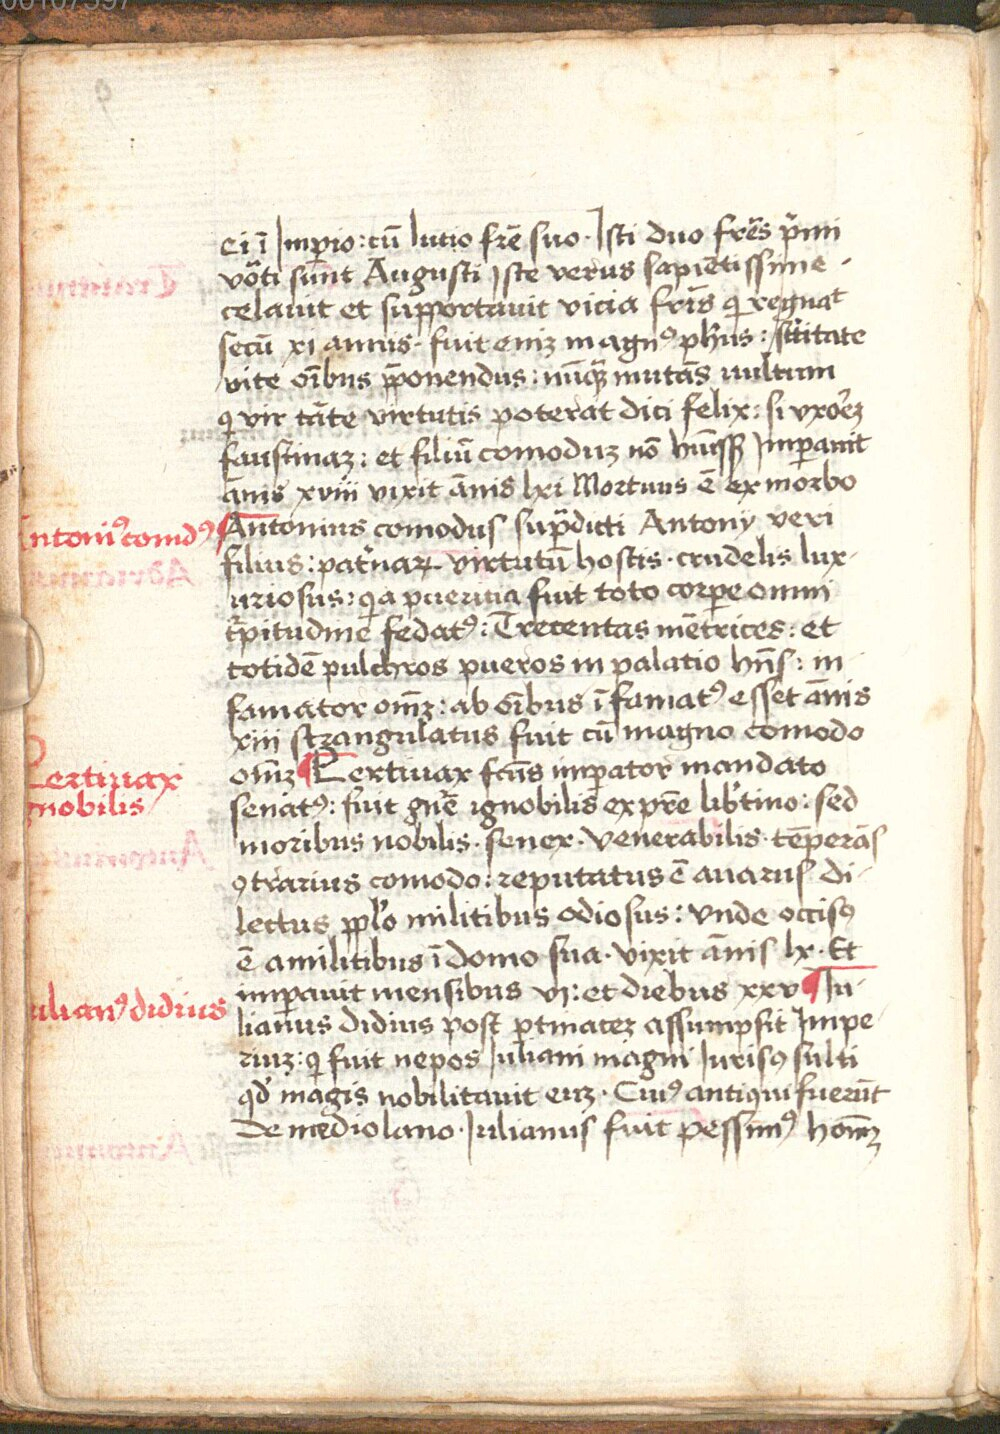 ei ī Imꝑio: cū lucio fr̄e suo. Isti duo fr̄es p̄mi
vōti sūnt Augusti Iste verus sapiētissime .
celauit et supportauit vicia fr̄is qͥ regnat
secū xi annis. fuit eniz magnꝰ ph̄us: st̄itate
vite oībus p̄ponendus: nūqͣ mutās uultum
qͥ vir tāte virtutis poterat dici felix: si vxorez
faustinaz: et filiū comoduz nō
Imꝑauit
ānis xviii vixit ānis lxi Mortuus ē ex morbo
Antoniꝰ comodꝰ
Antonius comodus sup̄dicti Antony veri
filius: pat̄naꝝ virtutū hostis. crudelis lux-
uriosus: qͥ a puericia fuit toto corꝑe omni
t̄pitudine fedatꝰ: Trecentas mēt̄rices: et
totidē pulchros pueros in palatio hn̄s: in
famator om̄z: ab oībus īfamatꝰ esset ānis
xiii strangulatus fuit cū magno comodo
Pertinax
gnobilis
om̄z ¶ Pertinax fcūs imꝑator mandato
senatꝰ: fuit gn̄e ignobilis ex pr̄e lib̄tino: sed
moribus nobilis. senex. venerabilis. tēperās
ꝯtrarius comodo: reputatus ē auarus di-
lectus ppl̄o militibus odiosus: vnde occisꝰ
ē a militibus ī domo sua. vixit ānis lx. Et
ulianꝰ didius
imꝑauit mensibus vi: et diebus xxv ¶ Iu-
lianus didius post ꝑtinacez assumpsit Impe-
riuz: qͥ fuit nepos Iuliani magni Iurisꝯsulti
qd̄ magis nobilitauit euz. Cuiꝰ antiqui fuerūt
de mediolano. Iulianus fuit pessimꝰ hom̄z